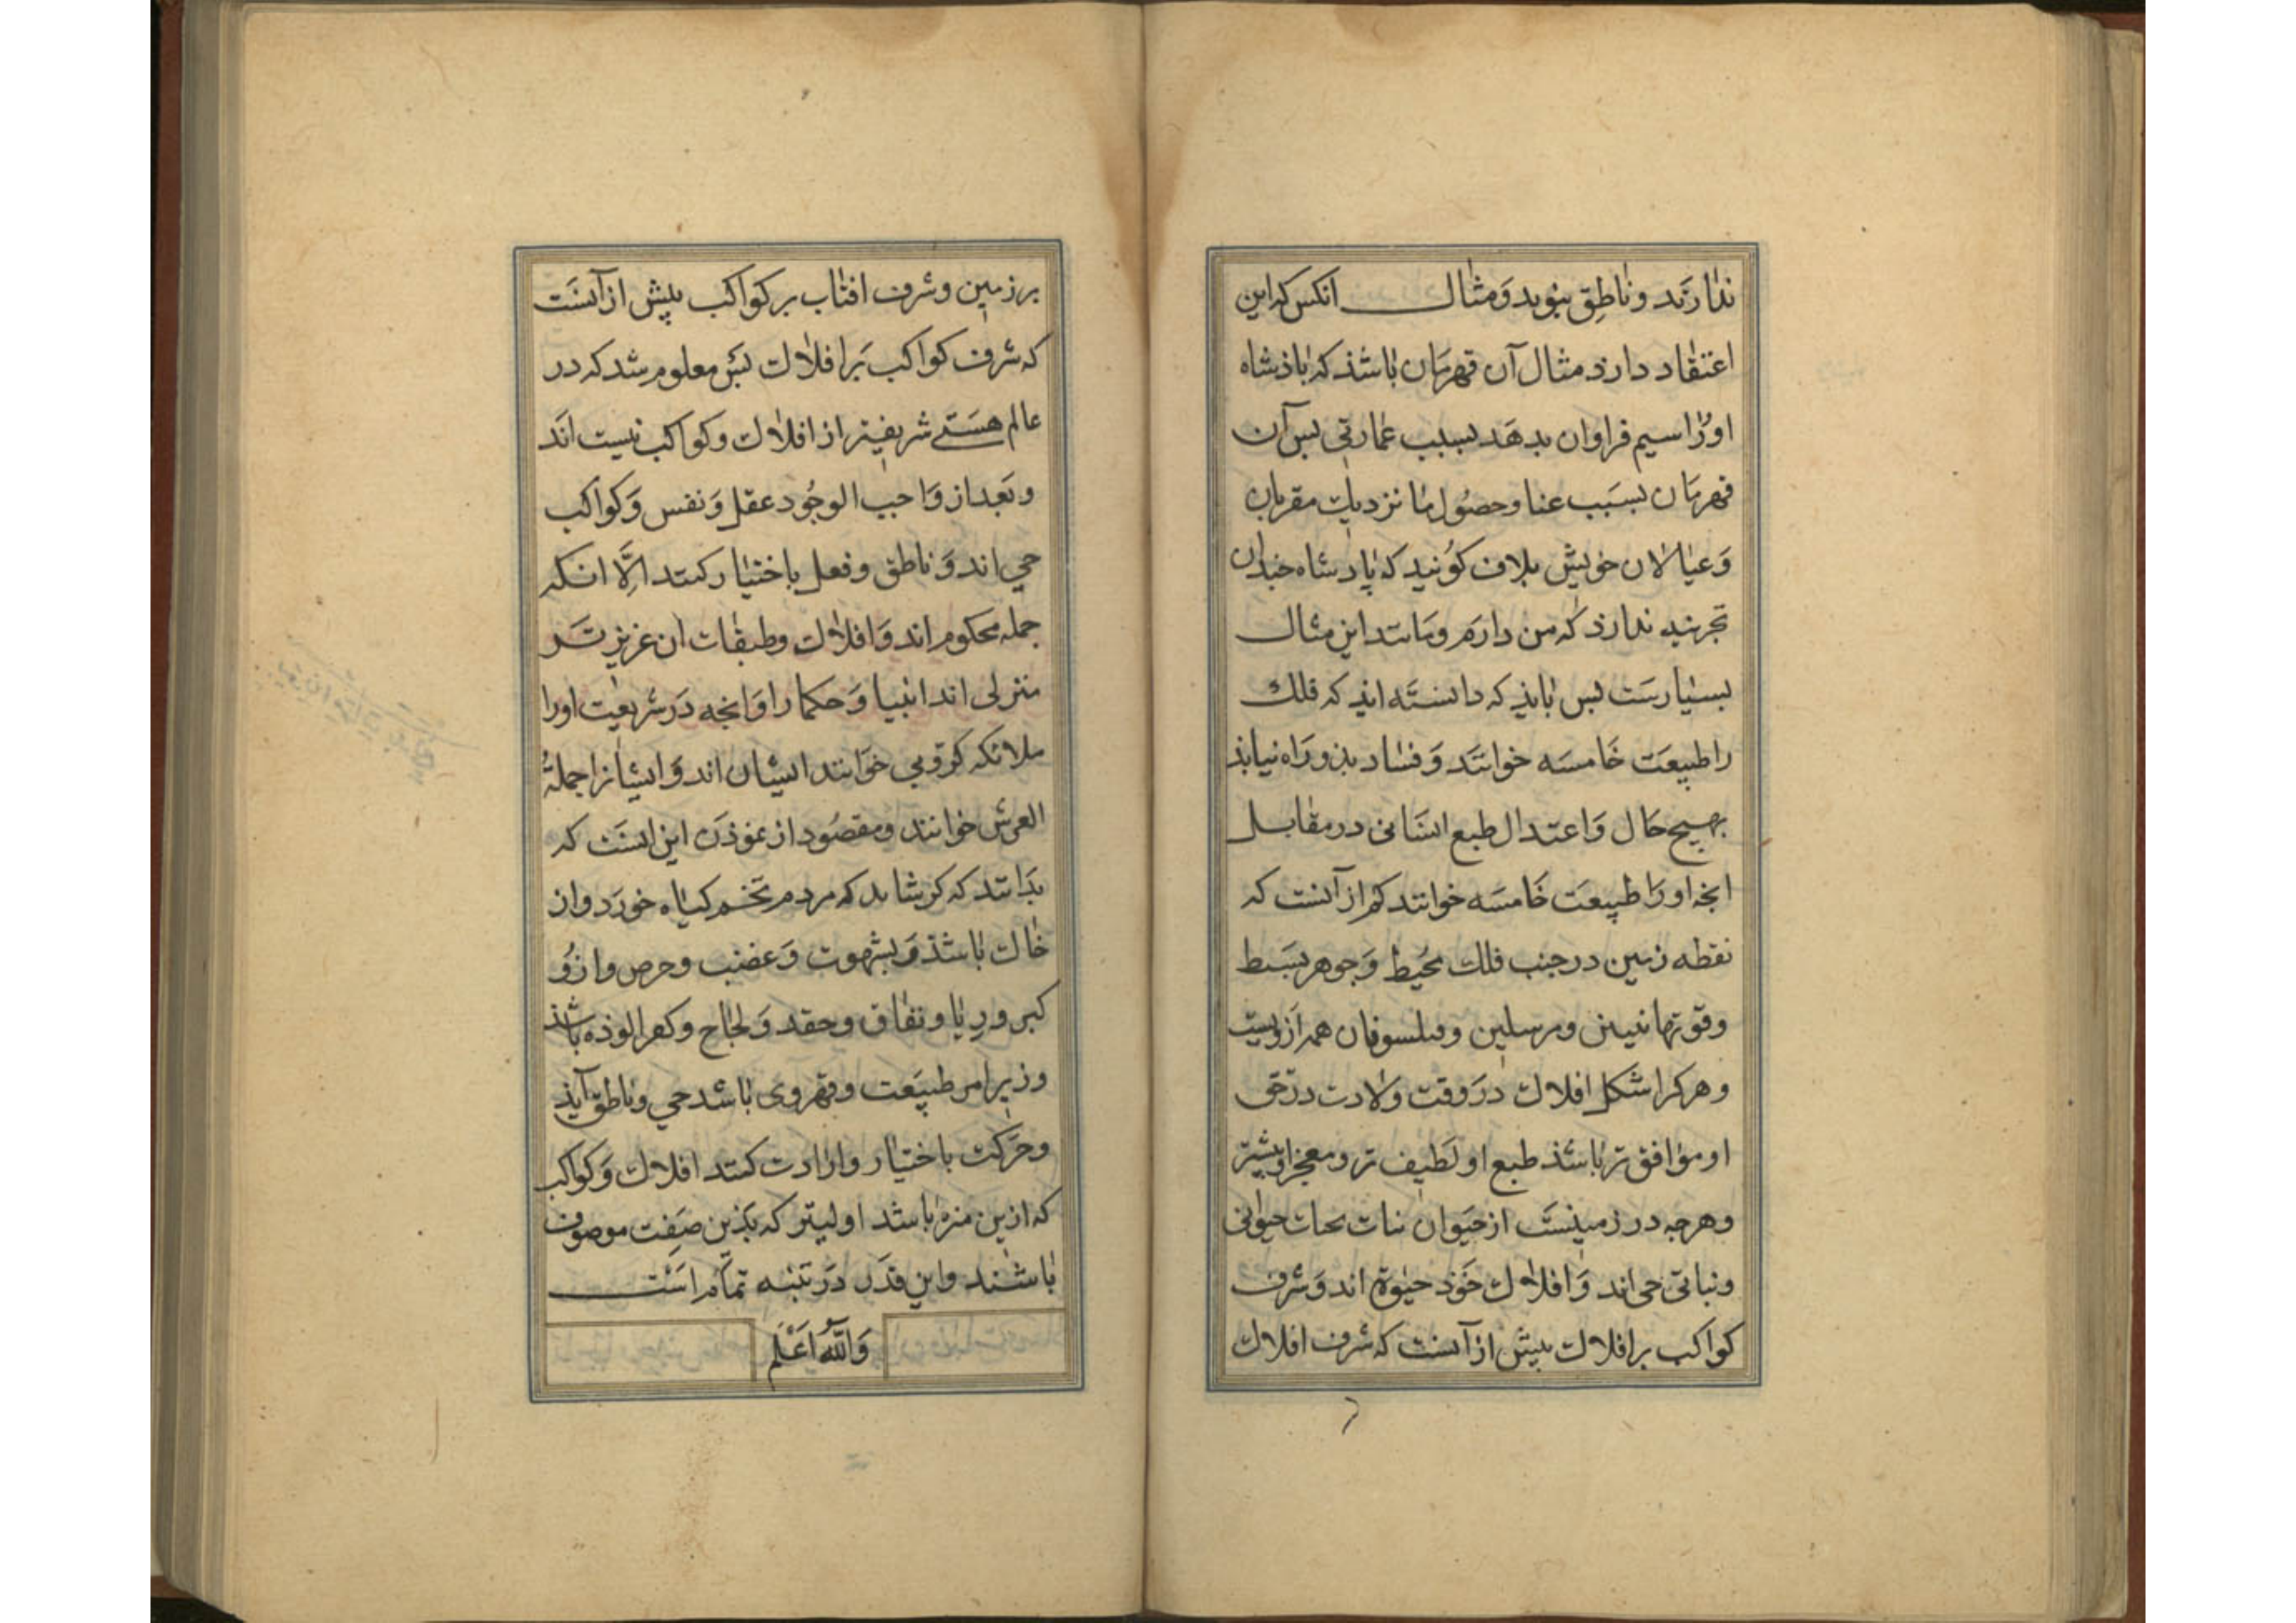 ندارند و ناطق نبوید و مثال انکس که این
اعتقاد دارد مثال آن قهرمان باشذ که باذشاه
اورا سیم فراوان بدهد بسبب عمارتی بس آن
قهرمان بسبب عنا و حصول ما نزدیک مقربان
و عیالان خویش بلاف کوید که پادشاه خندان
تجربه ندارذ که من دارم و مانند این مثال
بسیارست بس باید که دانسته اند که فلک
را طبیعت خامسه خوانند و فساد بذو راه نیابذ
بهیج حال و اعتدال طبع انسانی در مقابل
انجه اورا طبیعت خامسه خوانند کم از آنست که
نقطه زمین در جنب فلک محیط و جوهر بسیط
وقوتها نبیین و مرسلین و فیلسوفان همه ازویست
و هرکرا شکل افلاک در وقت ولادت در حق
او موافق تر باشذ طبع او لطیف تر و معجز او بیشتر
و هرجه در زمینست از حیوان نبات بحیات حیوانی
و نباتی حی اند و افلاک خوذ حیوة اند و شرف
کواکب بر افلاک بیش از آنست که شرف افلاک
بر زمین و شرف افتاب بر کواکب بیش از آنست
که شرف کواکب بر افلاک بس معلوم شد که در
عالم هستی شریفتر از افلاک و کواکب نیست اند
و بعد از واجب الوجود عقل و نفس و کواکب
حی اند و ناطق و فعل باختیار کنند الا انکه
جمله محکوم اند و افلاک و طبقات ان عزیزتر
منزلی اند انبیا و حکما را و انجه در شریعت اورا
ملائکه کروبی خوانند ایشان اند و ایشانرا جملة
العرش خوانند و مقصود از نموذن این انست که
بدانند که کر شاید که مردم تخم کیاه خورد و ان
خاک باشذ و بشهوت و غضب و حرص و ارزو
کبر و ریا و نفاق و حقد و لجاج و کفر الوذه باشذ
و زیر امر طبیعت و قهر وی باشد حی و ناطق آیذ
و حرکت باختیار و ارادت کند افلاک و کواکب
که ازین منزه باشد اولیتر که بذین صفت موصوف
باشند و این قدر در تنبه تمام است
والله اعلم